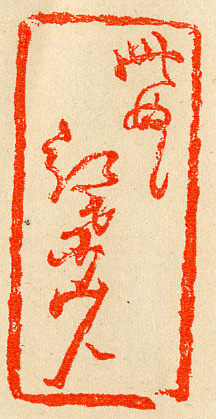 此ぬし
紅葉山人